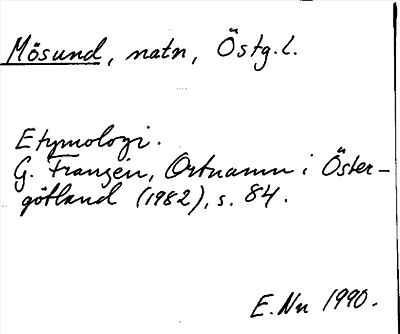 Mösund, natn, Östg.l.
Etymologi.
G. Franzén, Ortnamn i Öster-
götland (1982), s. 84.
E. Nn 1990.